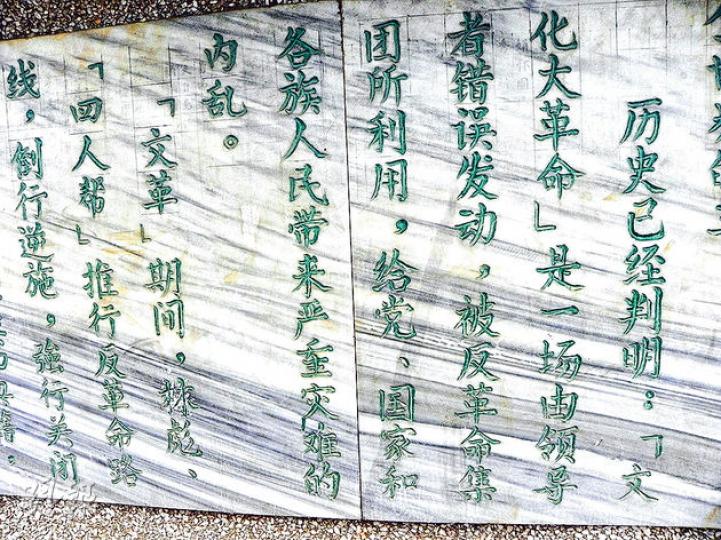 历史已经判明：「文
化大革命」是一场由领导
者错误发动，被反革命集
团所利用，给党、国家和
各族人民带来严重灾难的
内乱。
「文革」期间，林彪、
「四人帮」推行反革命路
线，倒行逆施，強行关闭